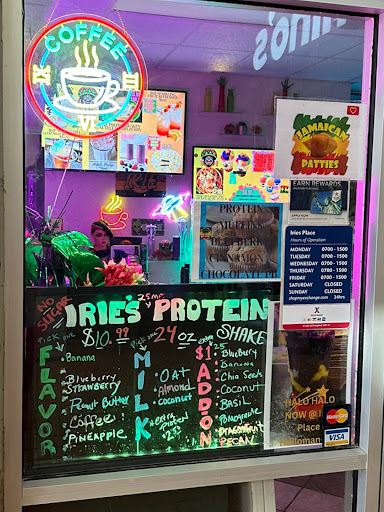 COFFEE
JAMAICAN
PATTIES
EARN REWARDS
Iries Place
Hours of Operation
MONDAY 0700 -1500
TUESDAY 0700 -1500
WEDNESDAY 0700 -1500
THURSDAY 0700 -1500
FRIDAY 0700 -1500
SATURDAY CLOSED
SUNDAY CLOSED
shopmyexchange.com 24hrs
PROTEIN
MUFFINS
BLUEBERRY
CINNAMON
CHOCOLATE PB
NO SUGAR
IRIE'S PROTEIN
25
$10.99 24 oz SHAKE
PICK ONE
FLAVOR
Banana
Blueberry
STRAWBERRY
Peanut Butter
Coffee
PINEAPPLE
MILK
OAT
Almond
coconut
extra
Protein
$2.50
$1 ADD ON
Blueberry
Banana
Chia Seeds
Coconut
BASIL
PECAN
HALO HALO
NOW @ I
Place
MasterCard
VISA